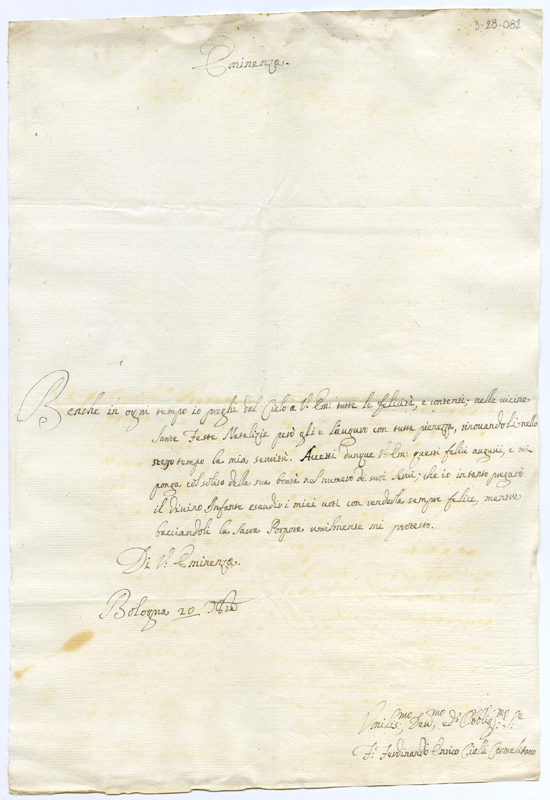 3-28-082
Eminenza.
Benche in ogni tempo io preghi dal Cielo a V: Em: tutte le felicità, e contenti, nelle vicine
Sante Feste Natalizie però gli e l'auguro con tutta pienezza, rinovandoli nello
stesso tempo la mia servitù. Accetti dunque V: Em: questi felici auguri, e mi
ponga col solito della sua bontà nel numero de suoi Servi; che io intanto pregarò
il divino Infante esaudir i miei voti con renderla sempre felice, mentre
bacciandoli la Sacra Porpora umilmente mi protesto.
Di V: Eminenza.
Bologna 20 Xbre
Umiliss:mo Dev:mo ed Obblig:mo Se
F: Ferdinando Enrico Cialli Carmelitano